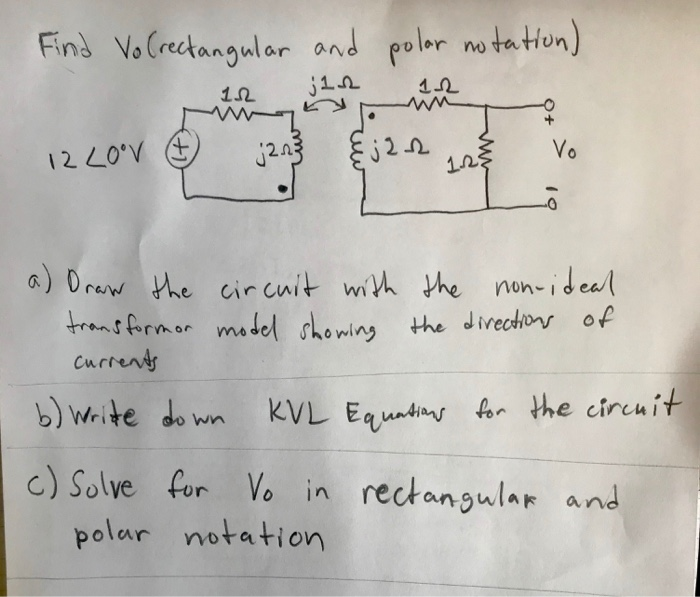 Find Vo (rectangular and polar notation)
j1Ω
1Ω
1Ω
12∠0°V
j2Ω
j2Ω
1Ω
+
Vo
-
a) Draw the circuit with the non-ideal
transformer model showing the directions of
currents
b) Write down KVL Equations for the circuit
c) Solve for Vo in rectangular and
polar notation